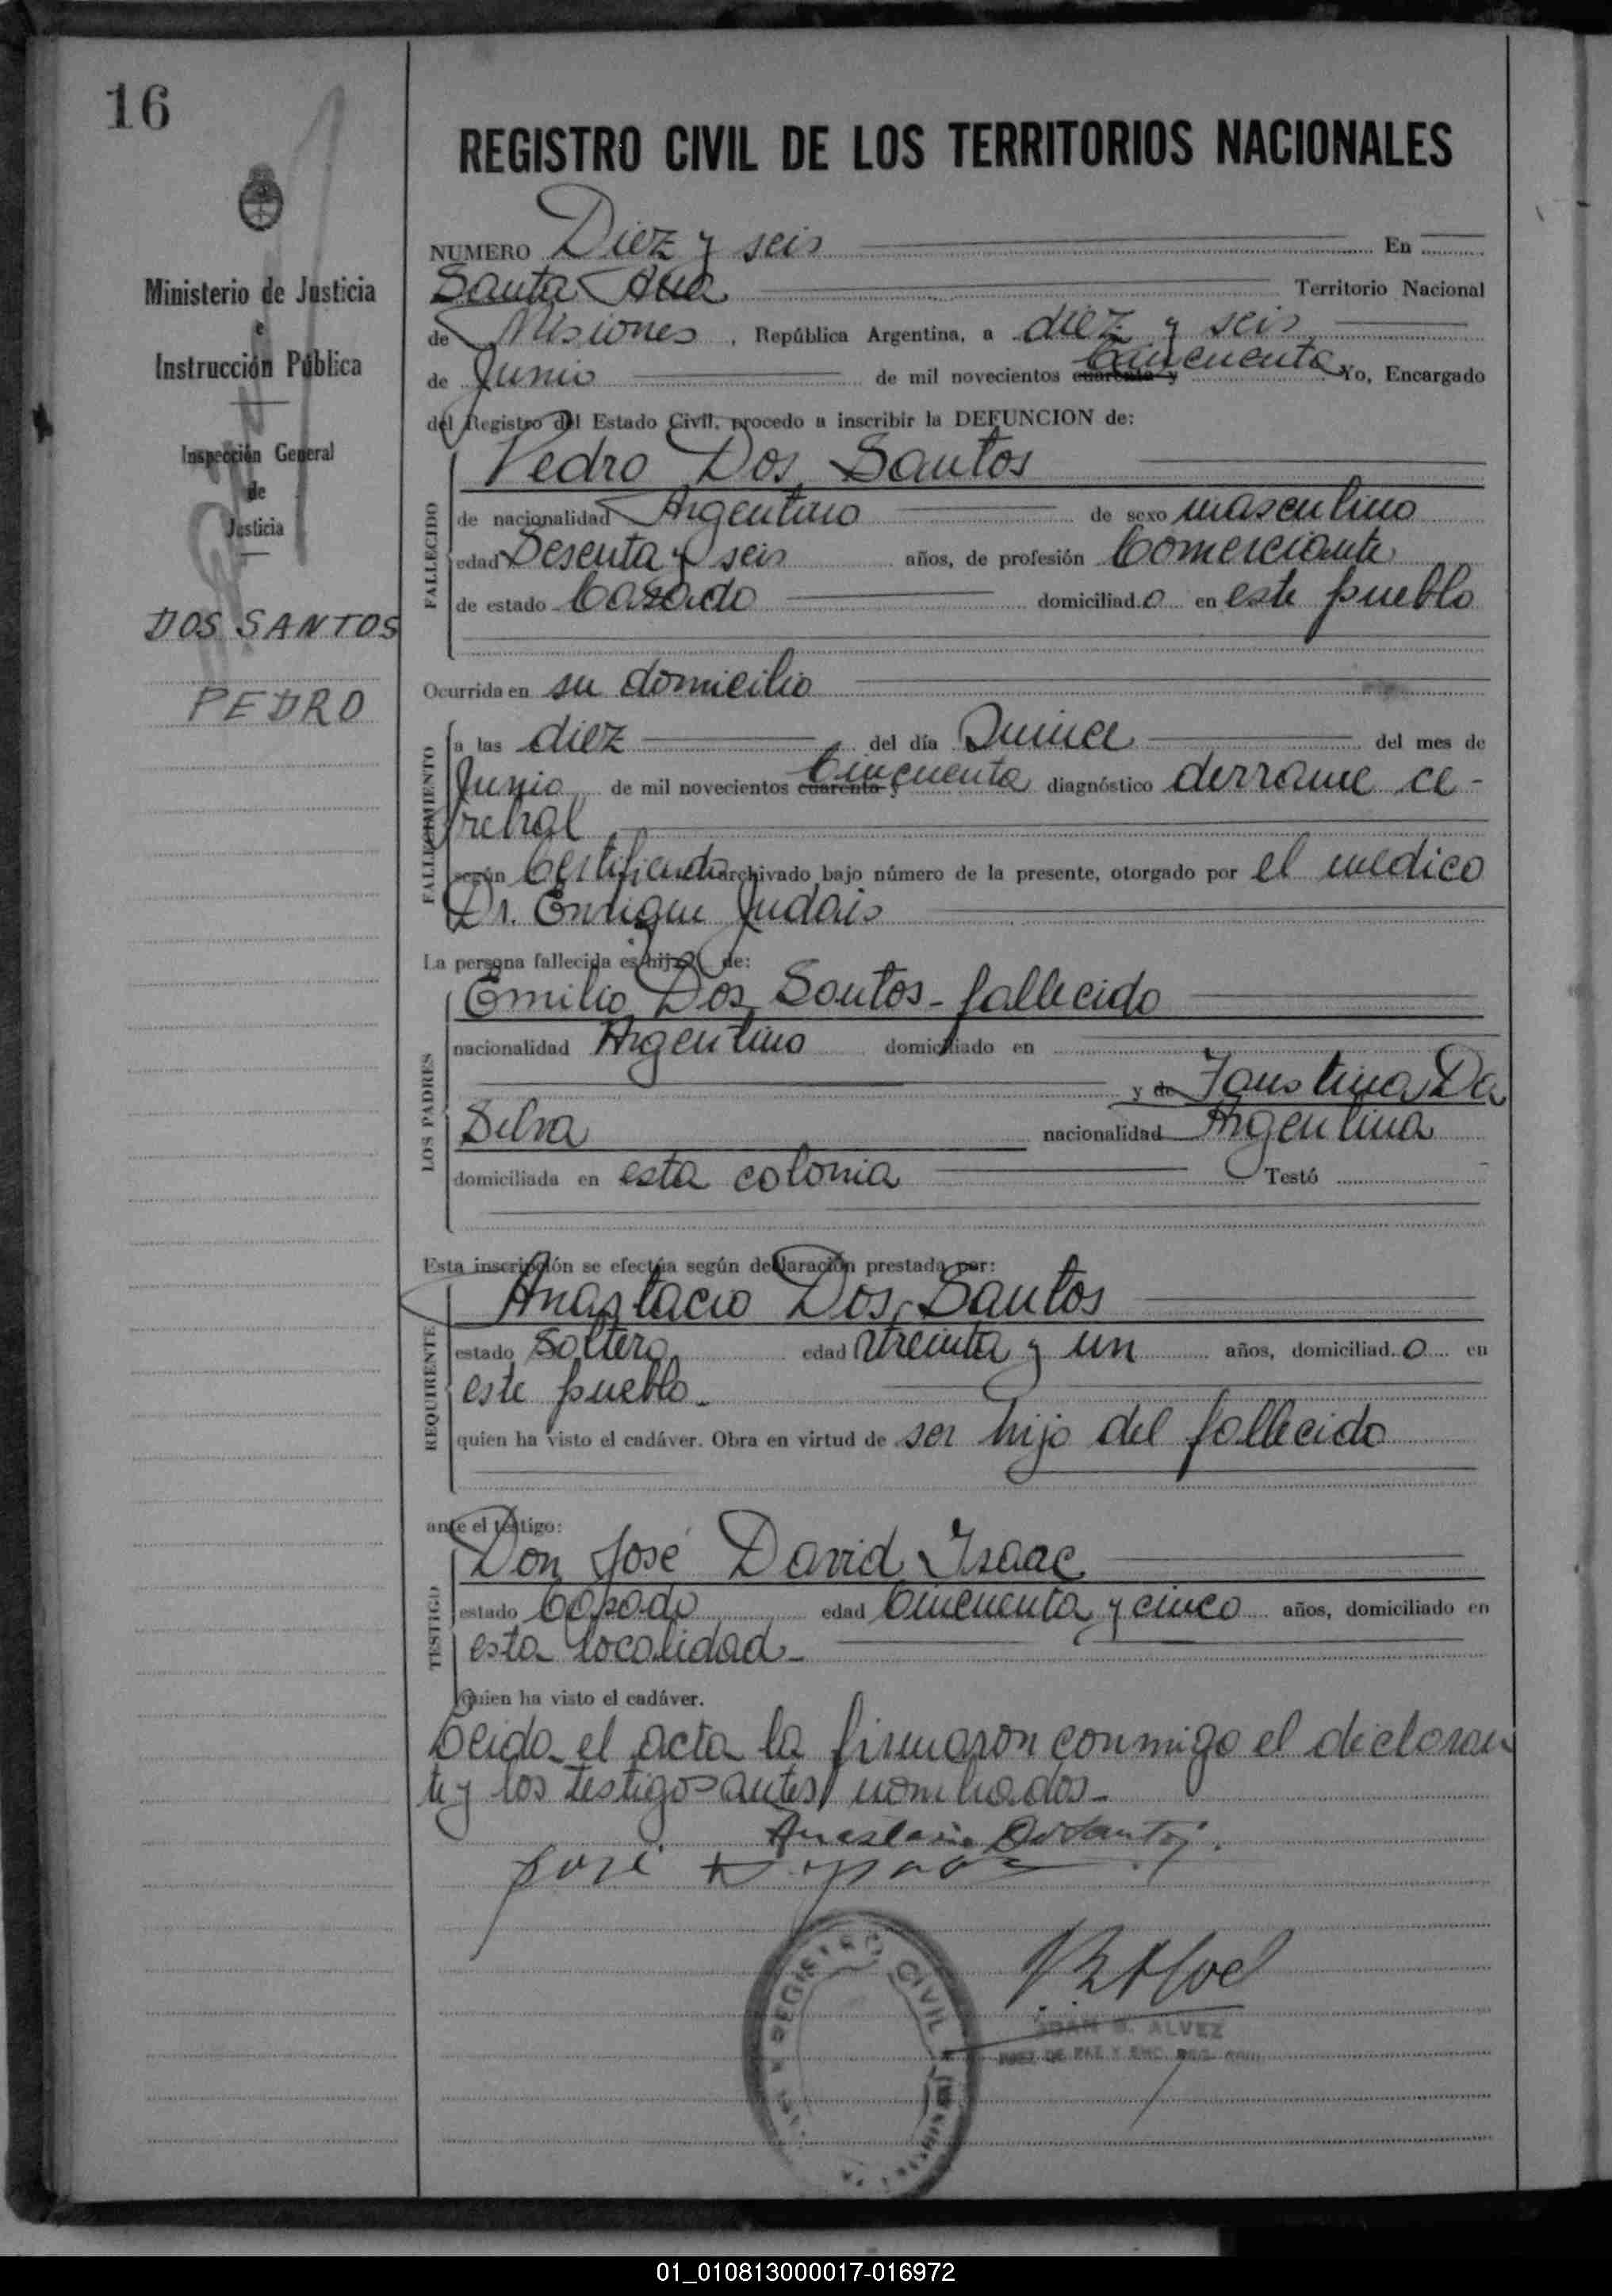 16
Ministerio de Justicia
e
Instrucción Pública
Inspección General
de
Justicia
DOS SANTOS
PEDRO
REGISTRO CIVIL DE LOS TERRITORIOS NACIONALES
NUMERO Diez y seis En
Santa Ana Territorio Nacional
de Misiones, República Argentina, a diez y seis
de Junio de mil novecientos cuarenta y Cincuenta Yo, Encargado
del Registro del Estado Civil, procedo a inscribir la DEFUNCION de:
FALLECIDO
Pedro Dos Santos
de nacionalidad Argentino de sexo masculino
edad Sesenta y seis años, de profesión Comerciante
de estado Casado domiciliado en este pueblo
Ocurrida en su domicilio
FALLECIMIENTO
a las diez del día Quince del mes de
Junio de mil novecientos cuarenta y Cincuenta diagnóstico derrame ce-
rebral
según Certificado archivado bajo número de la presente, otorgado por el medico
Dr. Enrique Judais
La persona fallecida es hijo de:
LOS PADRES
Emilio Dos Santos - fallecido
nacionalidad Argentino domiciliado en
y de Faustina Da
Silva nacionalidad Argentina
domiciliada en esta colonia Testó
Esta inscripción se efectúa según declaración prestada por:
REQUIRENTE
Anastacio Dos Santos
estado Soltero edad treinta y un años, domiciliado en
este pueblo.
quien ha visto el cadáver. Obra en virtud de ser hijo del fallecido
ante el testigo:
TESTIGO
Don José David Isaac
estado Casado edad Cincuenta y cinco años, domiciliado en
esta localidad-
quien ha visto el cadáver.
Leida el acta la firmaron conmigo el declaran
te y los testigos antes nombrados-
Anastacio Dos Santos.
José D Isaac
REGISTRO CIVIL
JUAN B. ALVEZ
JUEZ DE PAZ Y ENC. REG. CIVIL
01_010813000017-016972